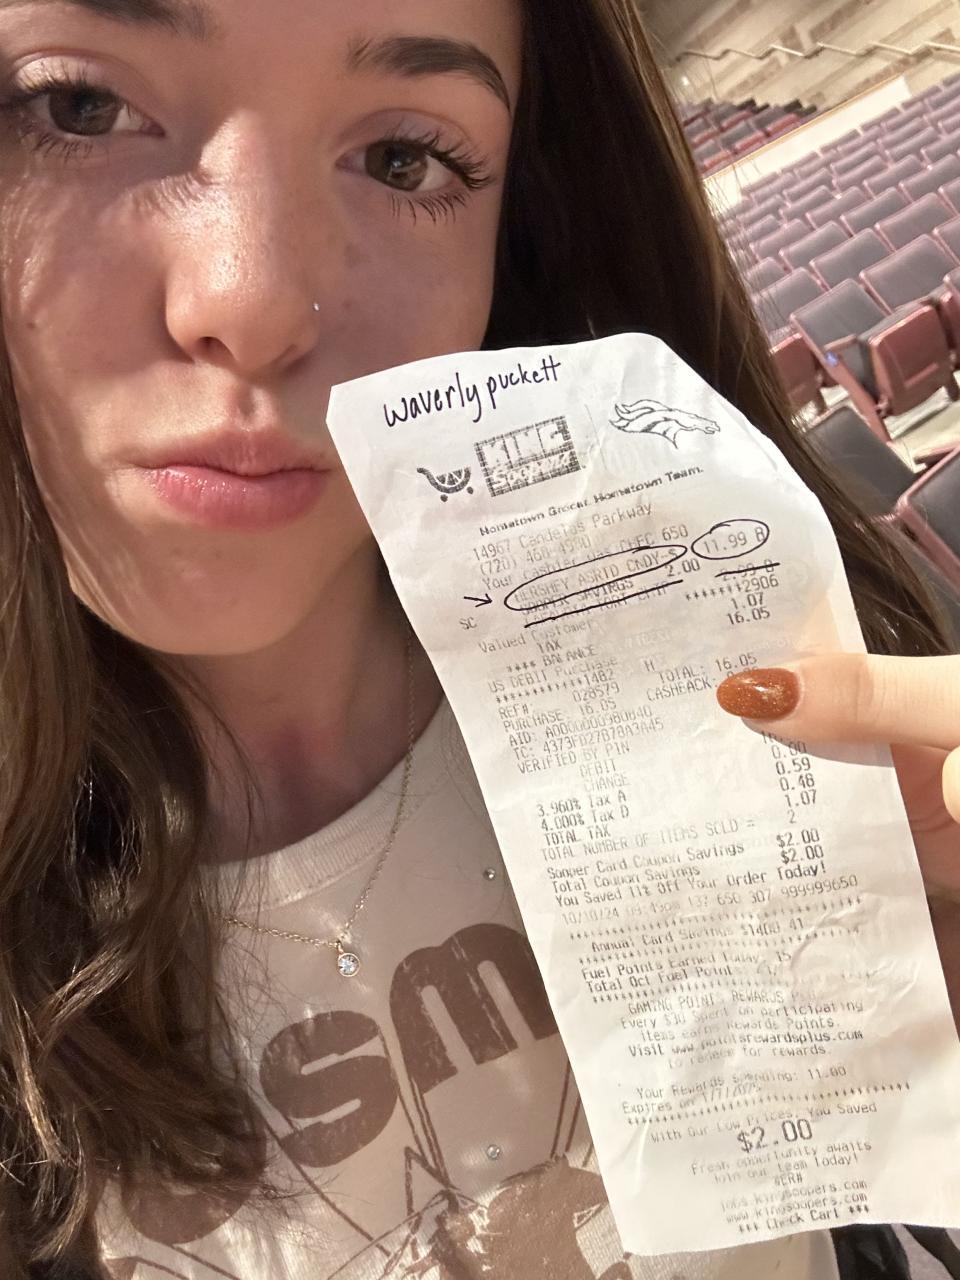 waverly puckett
KING
Soopers
Hometown Grocer. Hometown Team.
14967 Candelas Parkway
(720) 460-4930
Your cashier was CHEC 650
HERSHEY ASRTD CNDY 11.99 B
SC SOOPER SAVINGS 2.00
2.99 B
Valued Customer *******2906
TAX 1.07
**** BALANCE 16.05
US DEBIT Purchase
************1482
REF#: 028579 TOTAL: 16.05
PURCHASE: 16.05 CASHBACK:
AID: A0000000980840
TC: 4373FD27B78A3A45
VERIFIED BY PIN
DEBIT
CHANGE 0.00
3.960% Tax A 0.59
4.000% Tax D 0.48
TOTAL TAX 1.07
TOTAL NUMBER OF ITEMS SOLD = 2
Sooper Card Coupon Savings $2.00
Total Coupon Savings $2.00
You Saved 11% Off Your Order Today!
10/10/24 09:49pm 137 650 307 999999650
Annual Card Savings $1400.41
Fuel Points Earned Today: 15
Total Oct Fuel Points:
GAMING POINTS REWARDS
Every $30 Spent on participating
items earns Rewards Points.
Visit www.pointsrewardsplus.com
to redeem for rewards.
Your Rewards Spending: 11.00
Expires on 1/7/2025
With Our Low Prices, You Saved
$2.00
Fresh opportunity awaits
Join our team today!
#ER#
jobs.kingsoopers.com
www.kingsoopers.com
*** Check Cart ***
sm